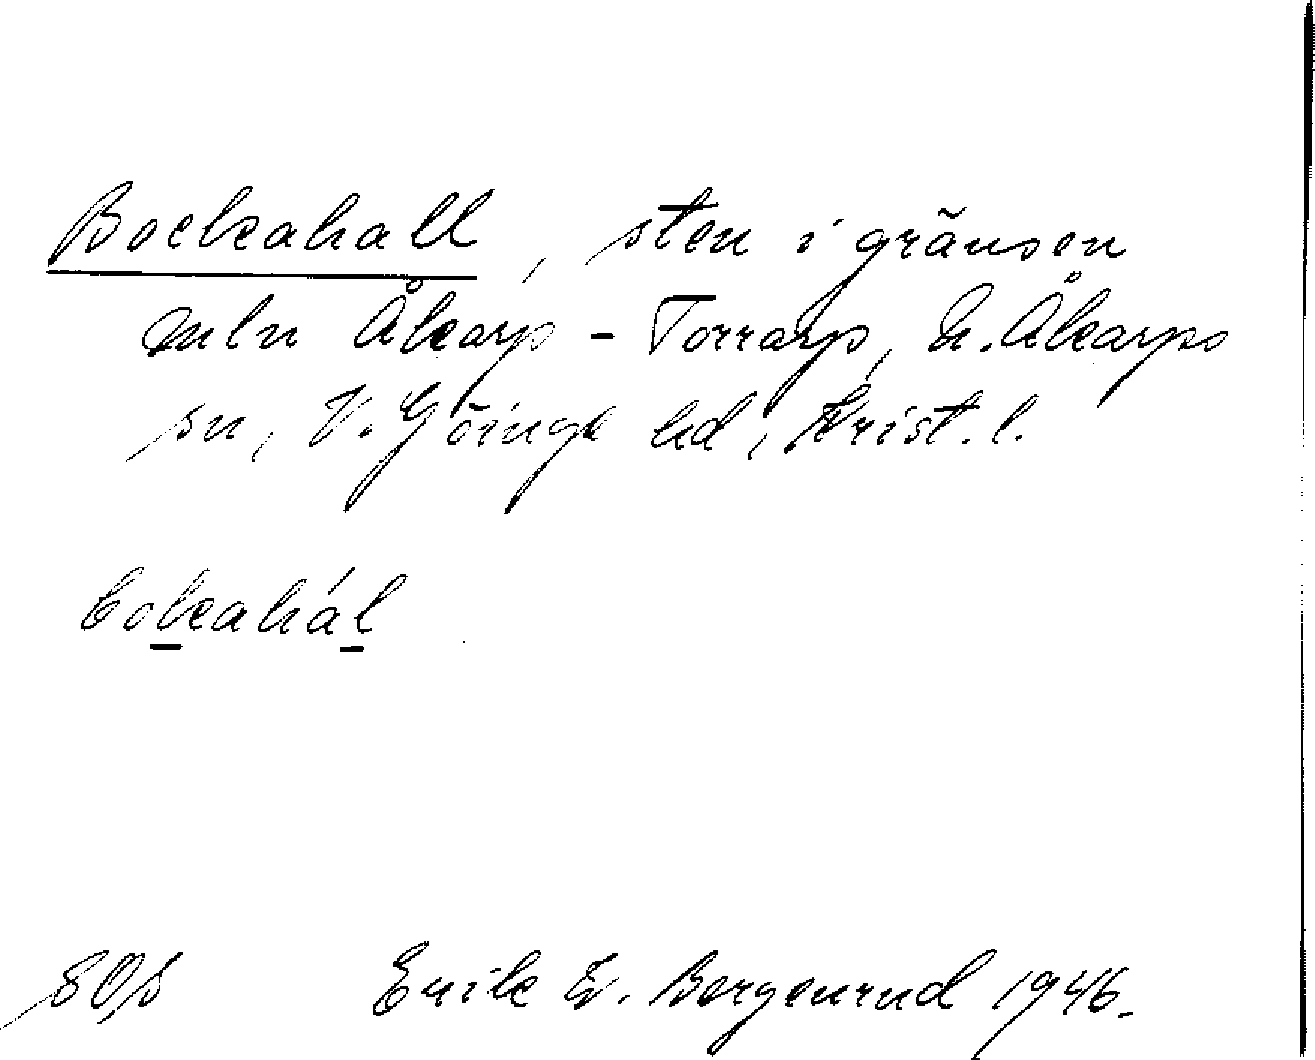 Bockahall, sten i gränsen
mln Åkarp - Torrarp, N. Åkarps
sn, V. Göinge hd, Krist. l.
bokahál
Erik E. Bergenrud 1946.